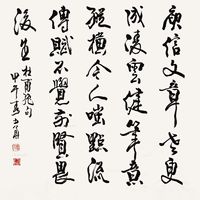 庾信文章老更
成凌雲健筆意
縱橫今人嗤點流
傳賦不覺前賢畏
後生
杜甫絕句
甲午夏